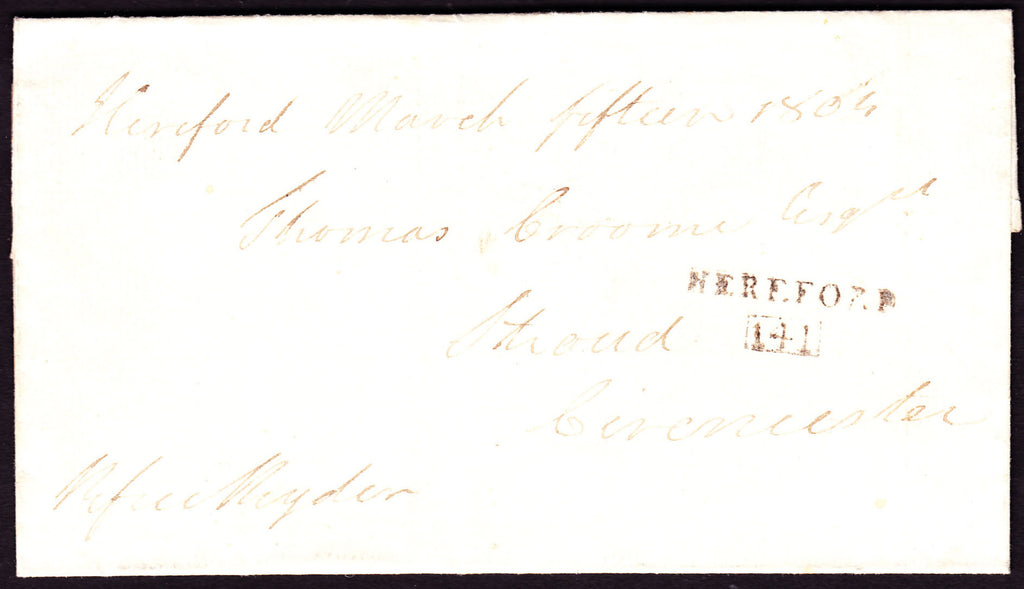 Hereford March fifteen 1804
Thomas Croome Esqre
HEREFORD
Stroud
141
Cirencester
free Ryder